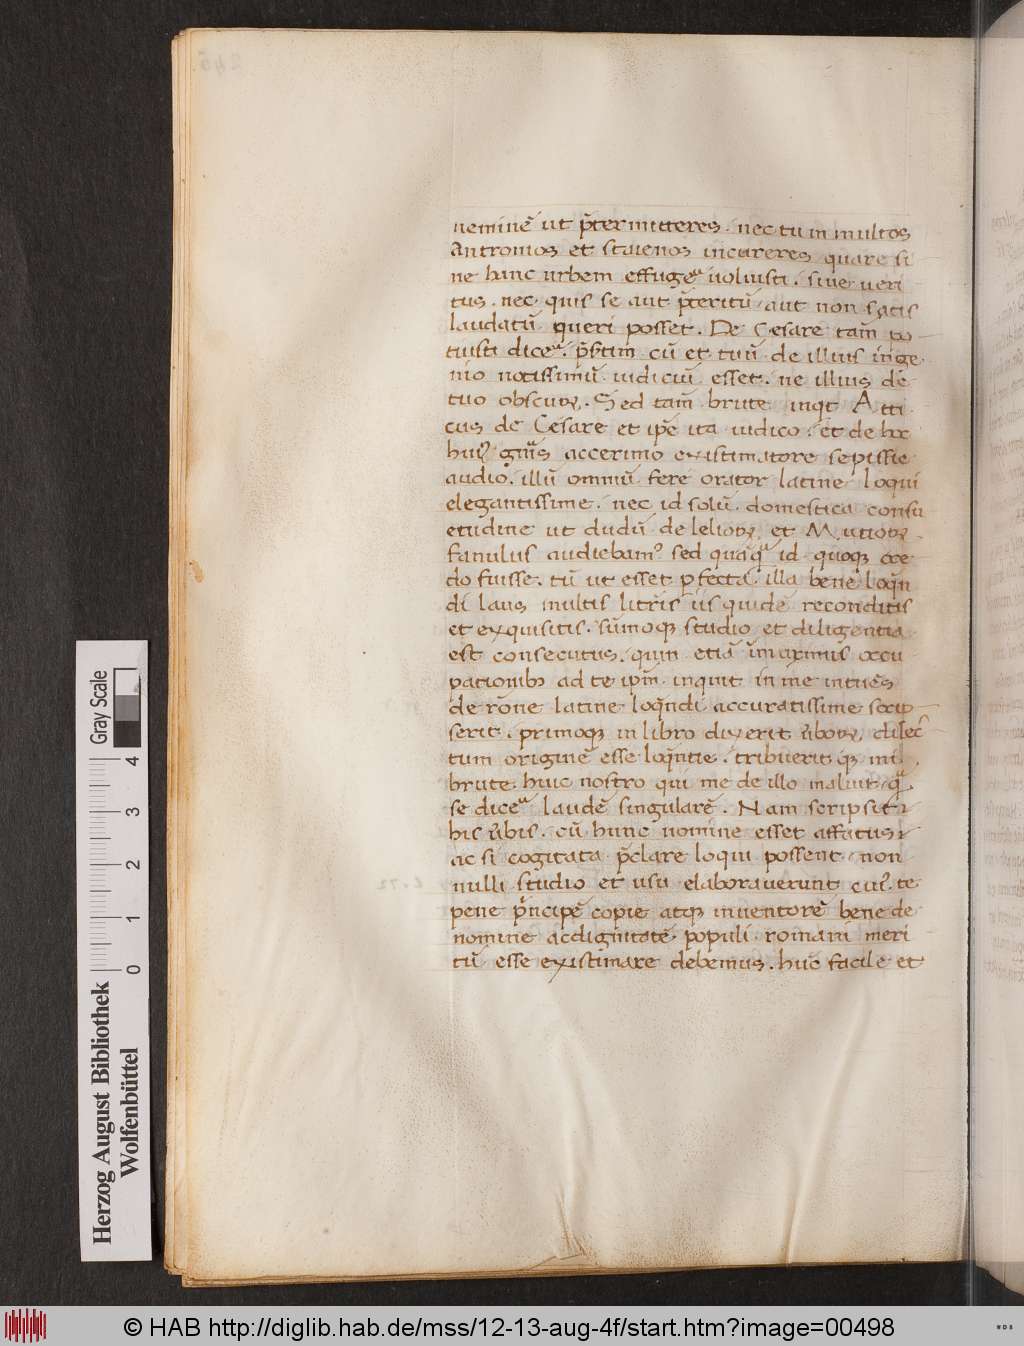 neminē ut p̄termitteres . nec tum multos
Antronios et staienos incureres quare si
ne hinc urbem effugeᷓ uoluisti . siue ueri
tus . nec quis se aut p̄teritū aut non satis
laudatū queri posset . De Cesare tam̄ po
tuisti diceᷓ . p̄sētim cū et tuū de illius inge
nio notissimū iudiciū esset . ne illius de
tuo obscurꝝ . Sed tam̄ brute inqt Atti
cus de Cesare et ip̄e ita iudico . et de hoc
huiꝰ gnīs accerimo existimatore sepissie
audio . illū omniū fere orator latine loqui
elegantissime . nec id solū domestica consu
etudine ut dudū de leliorꝝ et Mutiorꝝ
familiis audiebamꝰ sed quāq̄ id quoqꝫ cre
do fuisse . tū ut esset ꝑfecta illa bene loqn̄
di laus multis litr̄is iis quidē reconditis
et exquisitis . sūmoqꝫ studio et diligentia
est consecutus . quin etiā ī maximis occu
pationibꝫ ad te ip̄m inquit in me intuēs
de rōne latine loqn̄di accuratissime scrip
serit . primoqꝫ in libro dixerit ūborꝝ dilec
tum originē esse loqn̄tie . tribuerit qꝫ mi
brute huic nostro qui me de illo maluit q̄
se diceᷓ laudē singularē . Nam scripsit
his ūbis . cū hunc nomine esset affatus
ac si cogitata p̄clare loqui possent non
nulli studio et usu elaborauerunt cuiꝰ te
pene pͥncipē copie atqꝫ inuentorē bene de
nomine ac dignitate populi romani meri
tū esse existimare debemus . huc facile et
Herzog August Bibliothek
Wolfenbüttel
Gray Scale
0 1 2 3 4
© HAB http://diglib.hab.de/mss/12-13-aug-4f/start.htm?image=00498